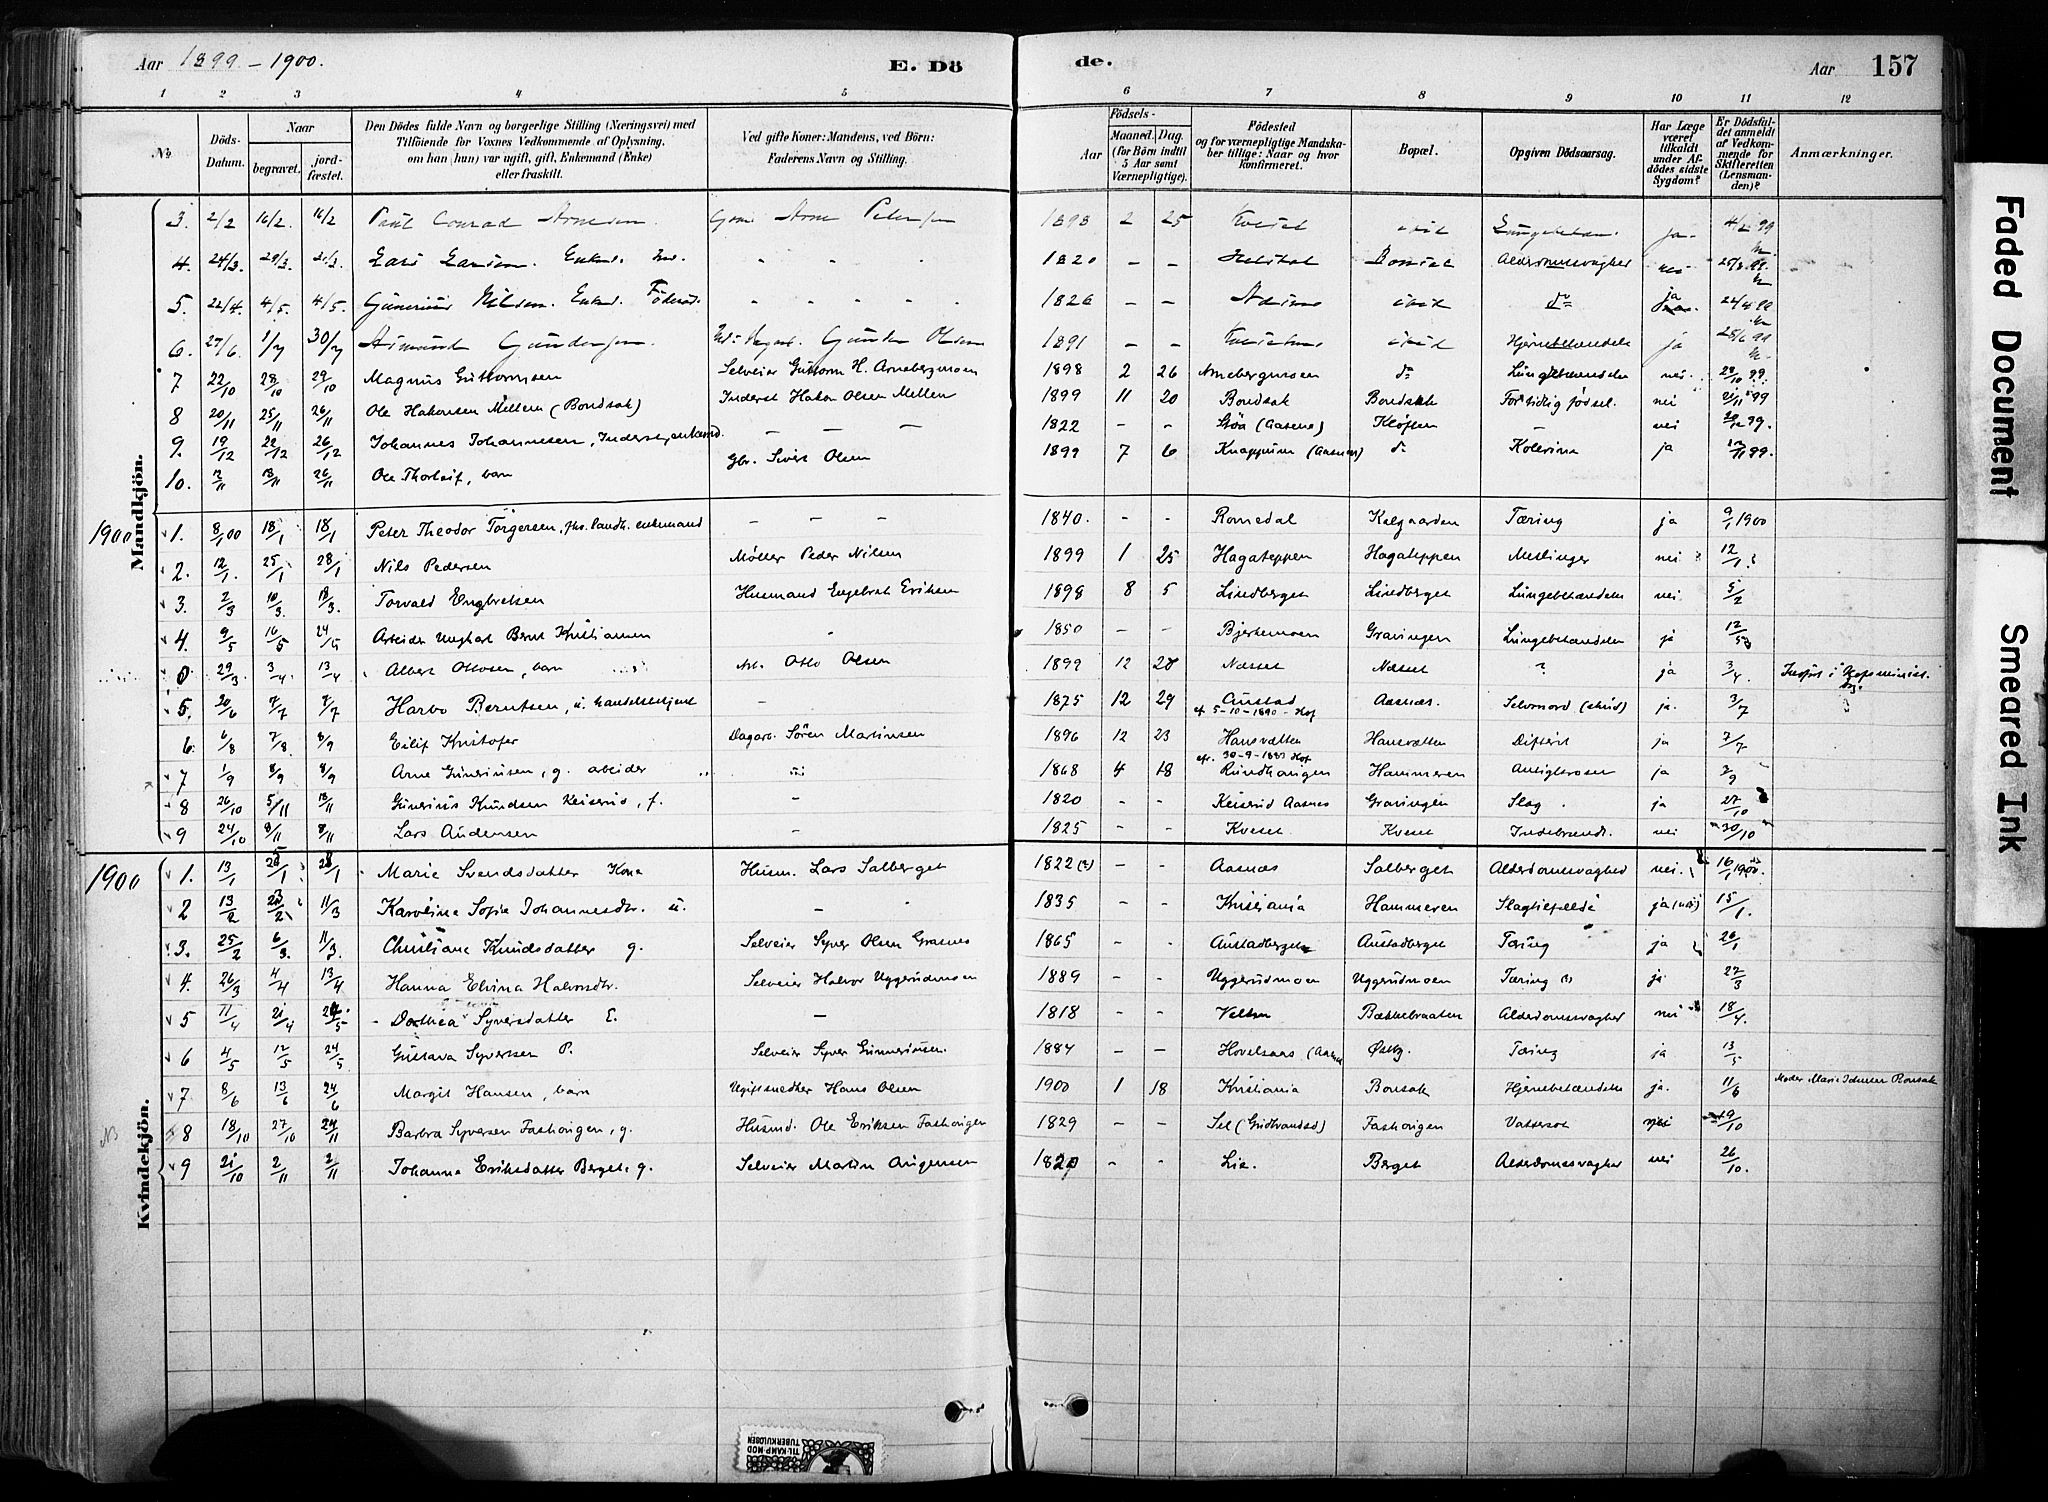 Aar 1899 - 1900.
E. Dö
de.
Aar 157
1 2 3 4 5 6 7 8 9 10 11 12
No
Döds-Datum.
Naar
begravet.
jord-fæstet.
Den Dödes fulde Navn og borgerlige Stilling (Næringsvei) med
Tilföiende for Voxnes Vedkommende af Oplysning,
om han (hun) var ugift, gift, Enkemand (Enke)
eller fraskilt.
Ved gifte Koner: Mandens, ved Börn:
Faderens Navn og Stilling.
Födsels-
Aar
Maaned. Dag.
(for Börn indtil
5 Aar samt
Værnepligtige).
Födested
og for værnepligtige Mandska-
ber tillige: Naar og hvor
konfirmeret.
Bopæl.
Opgiven Dödsaarsag.
Har Læge
været
tilkaldt
under Af-
dödes sidste
Sygdom?
Er Dödsfal-
det anmeldt
af Vedkom-
mende for
Skifteretten
(Lensman-
den)?
Anmærkninger.
Mandkjön.
3. 2/2 16/2 16/2 Paul Conrad Arnesen. Arne Petersen 1898 2 25 ibid ja. 4/2 99
4. 24/3. 29/3. Lars Larsen. Enkem. " " " 1820 - - Alderdomssvaghed nei 25/3 99
5. 22/4. 4/5. 4/5. Gunerius Nilsen. Enkem. Föderaad. " " " 1826 - - ibid do ja 24/4 99
6. 27/6 1/7 30/7 Amund Gundersen. Gunder Olsen 1891 - - ibid Hjernebetændelse ja
7 22/10 28/10 29/10 Magnus Guttormsen Selveier Guttorm H. Arnebergmoen 1898 2 26 Arnebergmoen do Lungebetændelse nei. 28/10 99.
8 20/11 25/11 26/11 Ole Hakonsen Mellem (Bondsak) Inderst Hakon Olsen Mellem 1899 11 20 Bondsak Bondsak For tidlig födsel. nei 21/11 99
9. 19/12 22/12 26/12 Johannes Johannesen, Inderst, enkemd. - - - 1822 - - (Aasnes) Kløften - nei 99.
10. 12/11 18/11 26/11 Ole Thorleif, barn Gbr. Sivert Olsen 1899 7 6 (Aasnes) do Kolerina ja 12/11 99.
1900
1. 8/1 00 18/1 18/1 Peter Theodor Torgersen, enkemand - - - 1840. - - Romedal Kalgaarden Tæring ja 9/1 1900
2. 12/1. 25/1 28/1 Nils Pedersen Møller Peder Nilsen 1899 1 25 Hagateppen Hagateppen Meslinger nei 12/1.
3. 2/3 10/3. 18/3. Torvald Engbretsen Husmand Engebret Eriksen 1898 8 5 Lindberget Lindberget Lungebetændelse nei 5/2
4. 9/5 16/5 24/5 Arbeider Ungkar Bernt Kristiansen " 1850 - - Bjerkemoen Gravingen Lungebetændelse ja 12/5
0 29/3 3/4. 13/4 Albert Ottosen, barn Arb. Otto Olsen 1899 12 28 Næsset Næsset ? ja 3/4.
5. 20/6 7/7 7/7 Harbo Berntsen, u. handelsbetjent - 1875 12 29 Austad Aasnæs. Selvmord (skud) ja. 3/7
ef 5-10-1890 - Hof
6. 6/8 7/8. 8/9 Eilif Kristofer Dagarb. Sören Martinsen 1896 12 23 Hansvætten Hansvætten Difterit ja 7/7
7 1/9 8/9 8/9 Arne Gunerinsen, g. arbeider " 1868 4 18 Rundhaugen Hammeren ja 3/9
ef. 30-9-1883 Hof
8 26/10 5/11 18/11 Gunerius Knudsen Keiserud, f. - 1820 - - Keiserud Aasnes Gravingen Slag. ja 27/10
9 24/10 8/11 8/11 Lars Audensen - 1825 - - Kveset Kveset nei 30/10
Kvindekjön.
1900
1. 13/1 25/1 28/1 Marie Svendsdatter Kone Husm. Lars Salberget 1822 (?) - - Aasnæs Salberget Alderdomssvaghed nei. 16/1 1900.
2 13/2 23/2 11/3 Karoline Sofie Johannesdtr. u. - " 1835 - - Kristiania Hammeren Slagtilfælde ja (nei) 15/1.
3. 25/2 6/3. 11/3. Christiane Knudsdatter g. Selveier Syver Olsen Grasnes 1865 - - Austadberget Austadberget Tæring ja 26/1
4. 26/3 4/4 13/4 Hanna Elvina Halvorsdtr. Selveier Halvor Uggerudmoen 1889 - - Uggerudmoen Uggerudmoen Tæring (?) ja 27/3
5 11/4 21/4 Dorthea Syversdatter E. - 1818 - - Bækkebraaten Alderdomssvaghed nei 18/4.
6 4/5 12/5 24/5 Gustava Syversen P. Selveier Syver Gunneriusen. 1884 - - Hovelsaas (Aasnes Østby. Tæring ja 13/5
7 8/6 13/6 24/6 Margit Hansen, barn Ugiftsnedker Hans Olsen 1900 1 18 Kristiania Bonsak Hjernebetændelse ja. 11/6 Moder Marie Johnsen Bonsak
NB
8 18/10 27/10 24/11 Barbra Syversen Fashovigen, g. Husmd. Ole Eriksen Fashovigen 1829 - - Sel (Gudbrandsd) Fashovigen Vattersot nei 19/10
9 21/10 2/11 2/11 Johanne Eriksdatter Berget, g. Selveier Martin Augensen 1820 - - Lie. Berget Alderdomssvaghed nei 26/10.
TIL-KAMP-MOD
TUBERKULOSEN
Faded Document
Smeared Ink